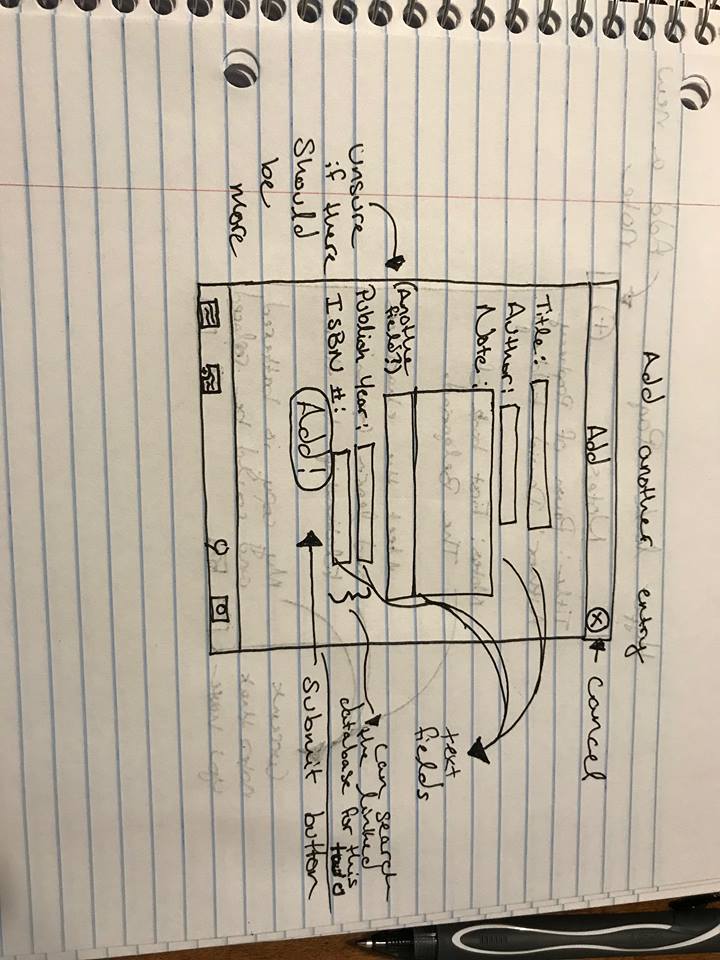 Add another entry
Add
cancel
Title:
Author:
Note:
text
fields
(Another
field?)
Unsure
if there
Should
be
more
Publish Year:
ISBN #:
can search
the linked
database for this
Add!
Submit button
Add a new
Note
Notes (+)